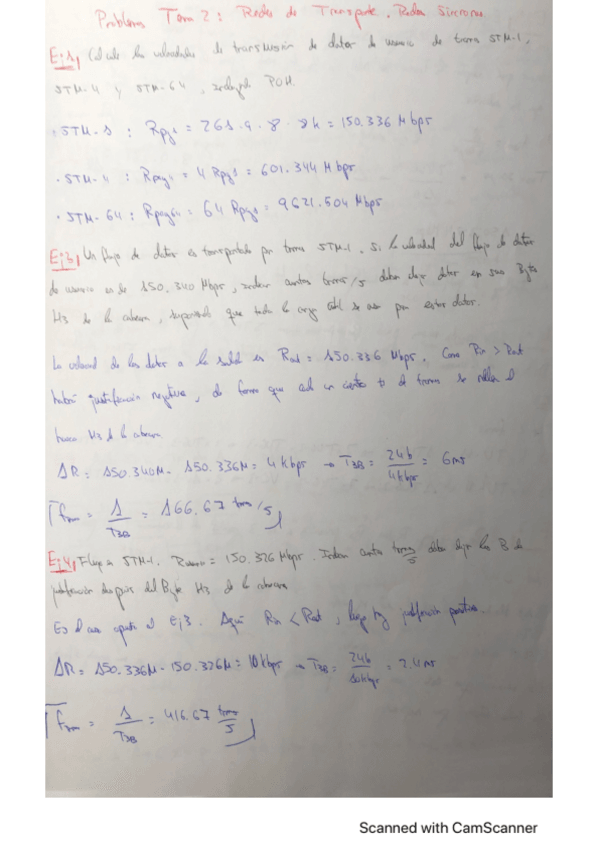 Problemas Tema 2: Redes de Transporte. Redes Síncronas
Ej 1, Calcule las velocidades de transmisión de datos de usuario de trama STM-1,
STM-4 y STM-64, POH.
· STM-1 : Rpay1 = 261 · 9 · 8 · 8k = 150.336 Mbps
· STM-4 : Rpay4 = 4 Rpay1 = 601.344 Mbps
· STM-64 : Rpay64 = 64 Rpay1 = 9621.504 Mbps
Ej 3, Un flujo de datos es transportado por tramas STM-1. Si la velocidad del flujo de datos
de usuario es de 150.340 Mbps, cuantas tramas/s deben dejar datos en sus Bytes
H3 de la cabecera, suponiendo que toda la carga útil se usa para estos datos.
La velocidad de los datos a la salida es Rout = 150.336 Mbps. Como Rin > Rout
habrá justificación negativa, de forma que cada un cierto de tramas se rellena el
hueco H3 de la cabecera
ΔR = 150.340M - 150.336M = 4kbps → T3B = 24b / 4kbps = 6ms
fram = 1 / T3B = 166.67 tramas/s
Ej 4, Flujo STM-1. Rusuario = 150.326 Mbps. Indem cuantas tramas/s deben dejar los B de
justificación después del Byte H3 de la cabecera
Es el caso opuesto al Ej 3. Aquí Rin < Rout, luego hay justificación positiva.
ΔR = 150.336M - 150.326M = 10kbps → T3B = 24b / 10kbps = 2.4ms
fram = 1 / T3B = 416.67 tramas/s
Scanned with CamScanner